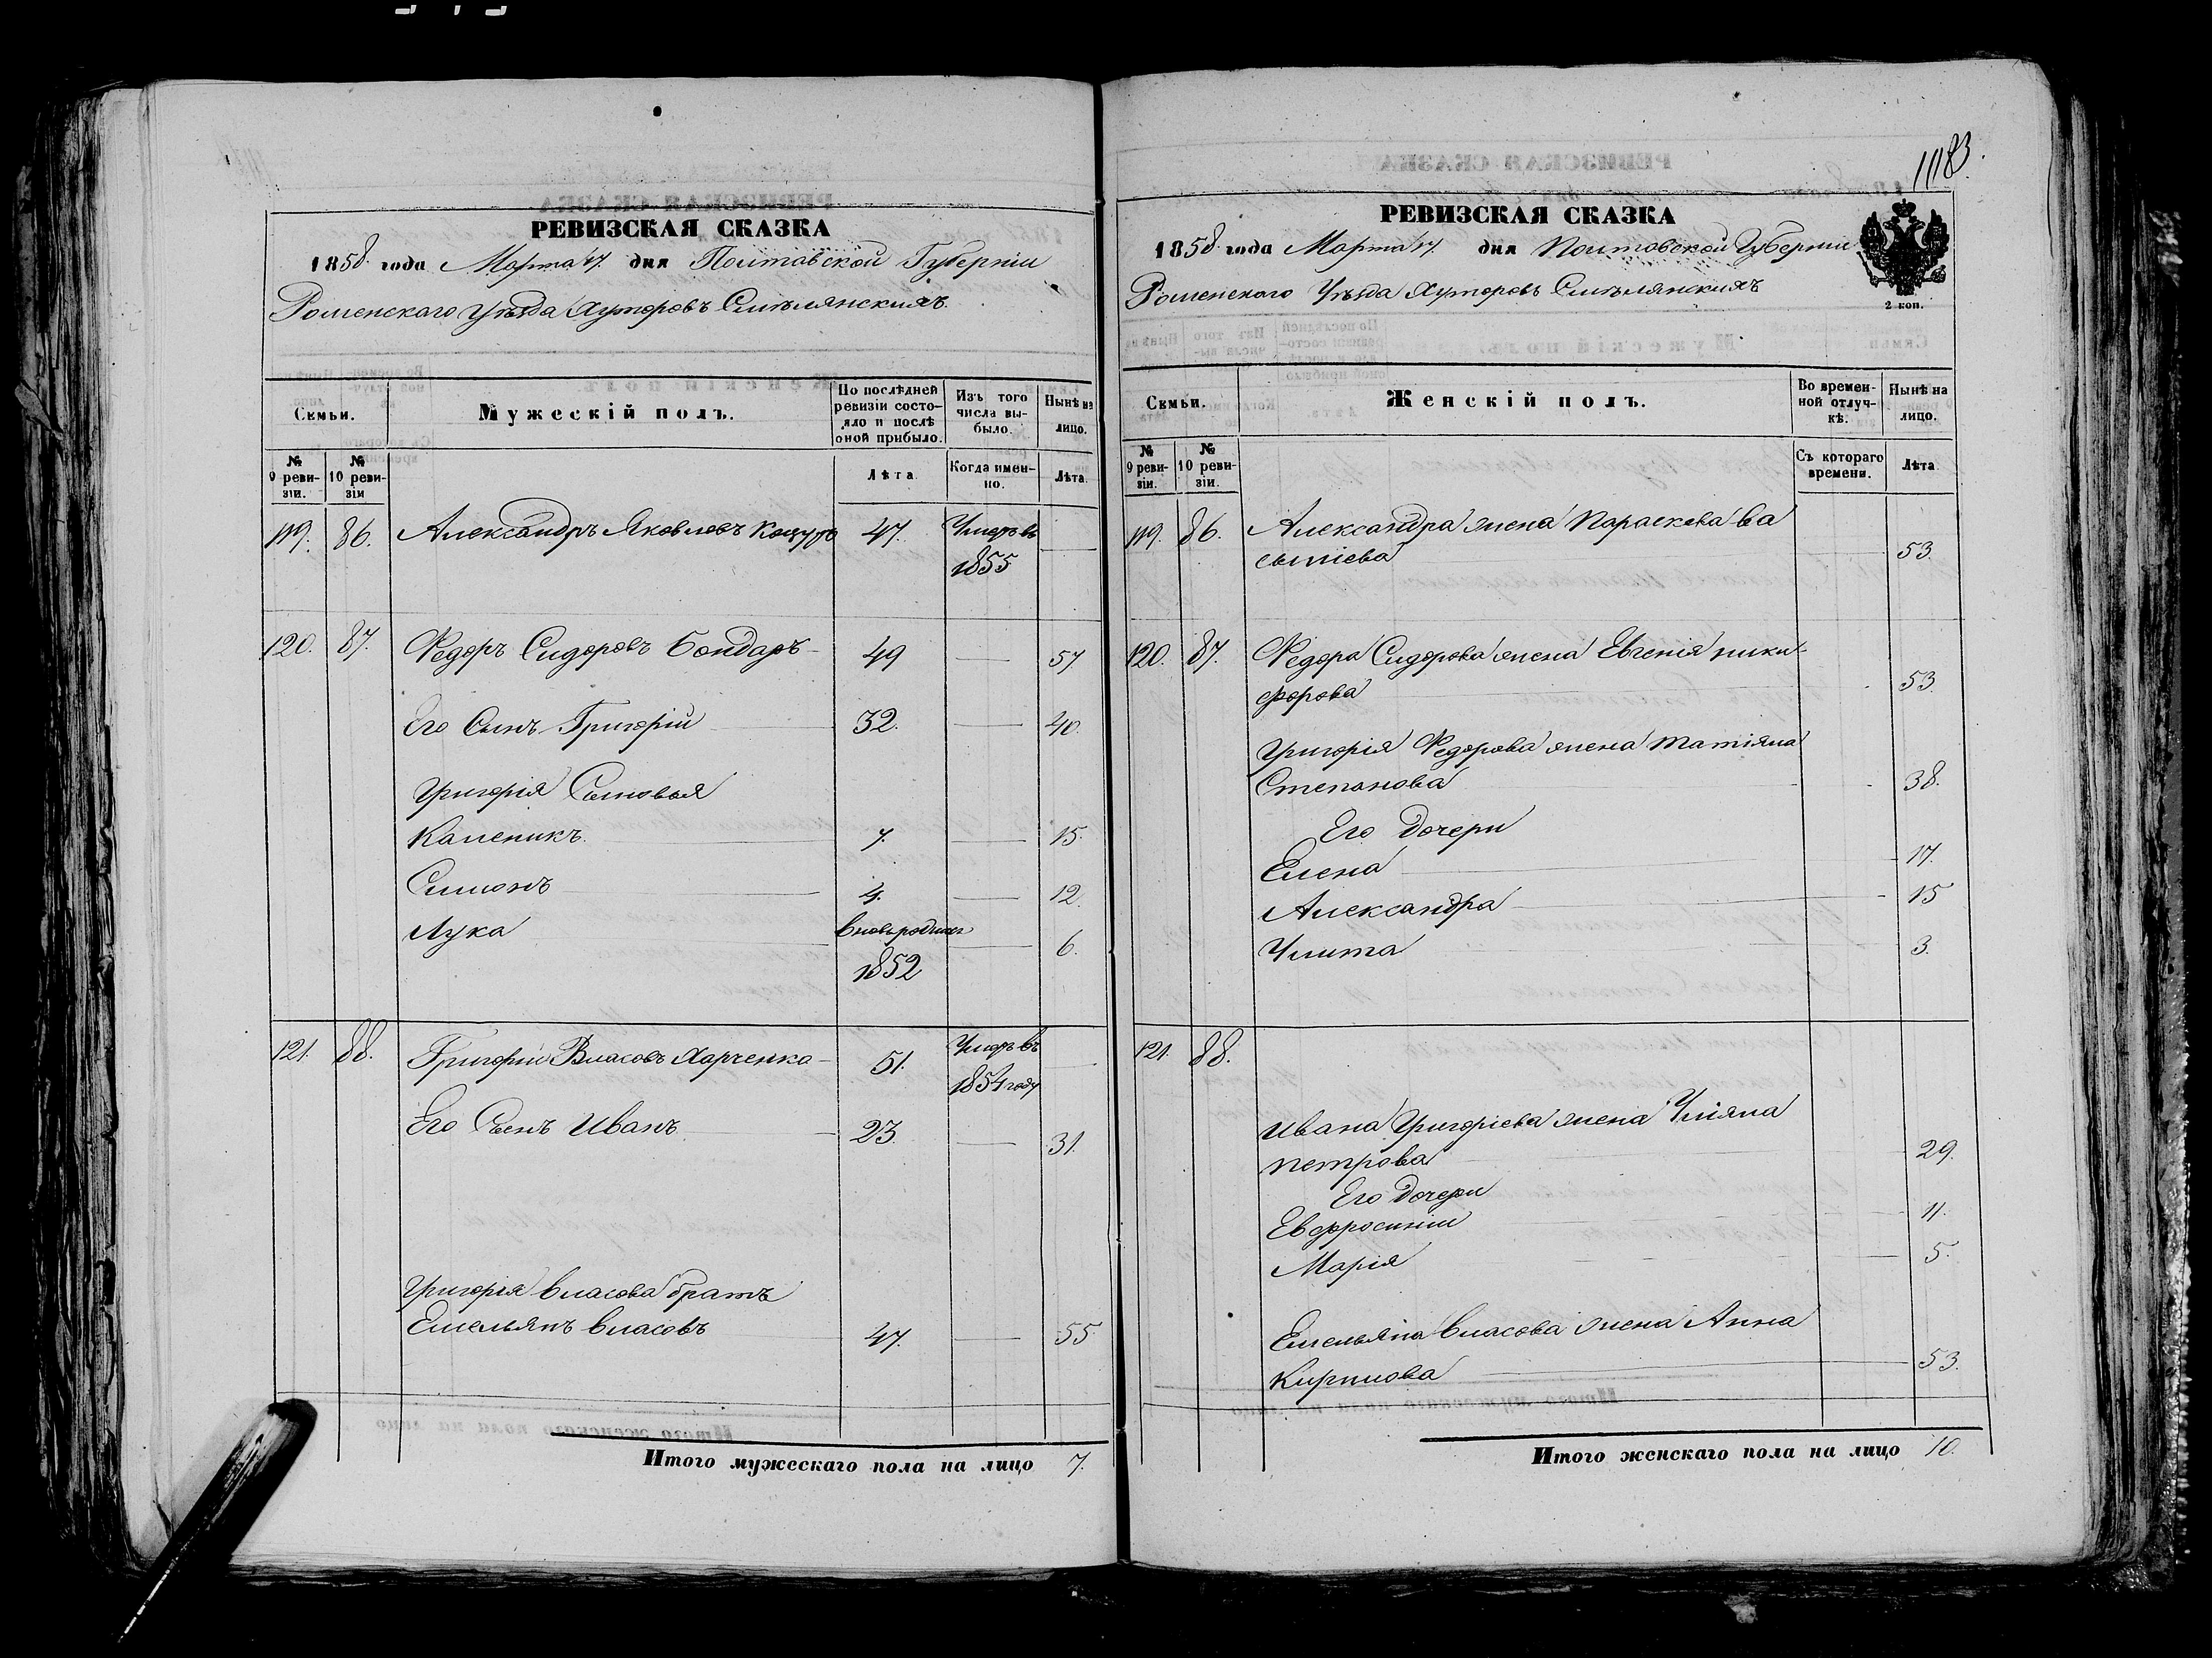 1183.
РЕВИЗСКАЯ СКАЗКА
1858 года Марта 17. дня Полтавской Губерніи
Роменскаго Уѣзда Хуторовъ Смѣлянскихъ.
Семьи.
Мужескій полъ.
По послѣдней ревизіи состояло и послѣ оной прибыло.
Изъ того числа выбыло.
Нынѣ на лицо.
№ 9 ревизіи.
№ 10 ревизіи
Лѣта
Когда именно.
Лѣта.
119. 86. Александръ Яковлевъ 47. Умеръ въ
1855
120. 87. Федоръ Сидоровъ Бондарь 49 — 57
Его Сынъ Григорій 32. — 40.
Григорія Сыновья
Каленикъ 7. — 15.
Симонъ 4. — 12.
Лука вновьродился — 6.
1852
121. 88. Григорій Власовъ Харченко 51. Умеръ въ
1854 году
Его Сынъ Иванъ 23. — 31.
Григорія Власова братъ
Емельянъ Власовъ 47. — 55
Итого мужескаго пола на лицо 7.
РЕВИЗСКАЯ СКАЗКА
1858 года Марта 17. дня Полтавской Губерніи
Роменскаго Уѣзда Хуторовъ Смѣлянскихъ
2 коп.
Семьи.
Женскій полъ.
Во временной отлучкѣ.
Нынѣ на лицо.
№ 9 ревизіи.
№ 10 ревизіи.
Съ котораго времени.
Лѣта
119. 86. Александра жена Параскева Ва
сыліева 53.
120. 87. Федора Сидорова жена Евгенія Ники-
форова 53.
Григорія Федорова жена Татіяна
Степанова 38.
Его Дочери
Елена 17.
Александра 15
Улита 3.
121. 88.
Ивана Григоріева жена Уліяна
Петрова 29.
Его Дочери
Евфросинія 11.
Марія 5.
Емельяна Власова жена Анна
Кирилова 53.
Итого женскаго пола на лицо 10.